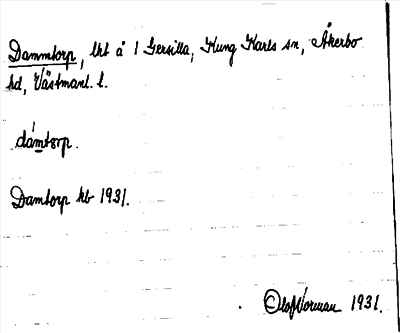 Dammtorp, lht å 1 Gersilla, Kung Karls sn, Åkerbo
hd, Västmanl. l.
dámtorp.
Damtorp kb 1931.
Olof Norman 1931.